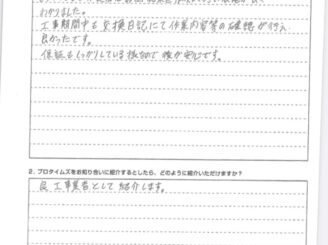 わかりました。
工事期間中も交換日記にて作業内容等の確認が行え
良かったです。
保証もしっかりしている様なので 安心です。
2. プロタイムズをお知り合いに紹介するとしたら、どのように紹介いただけますか？
良 工事業者として紹介します。